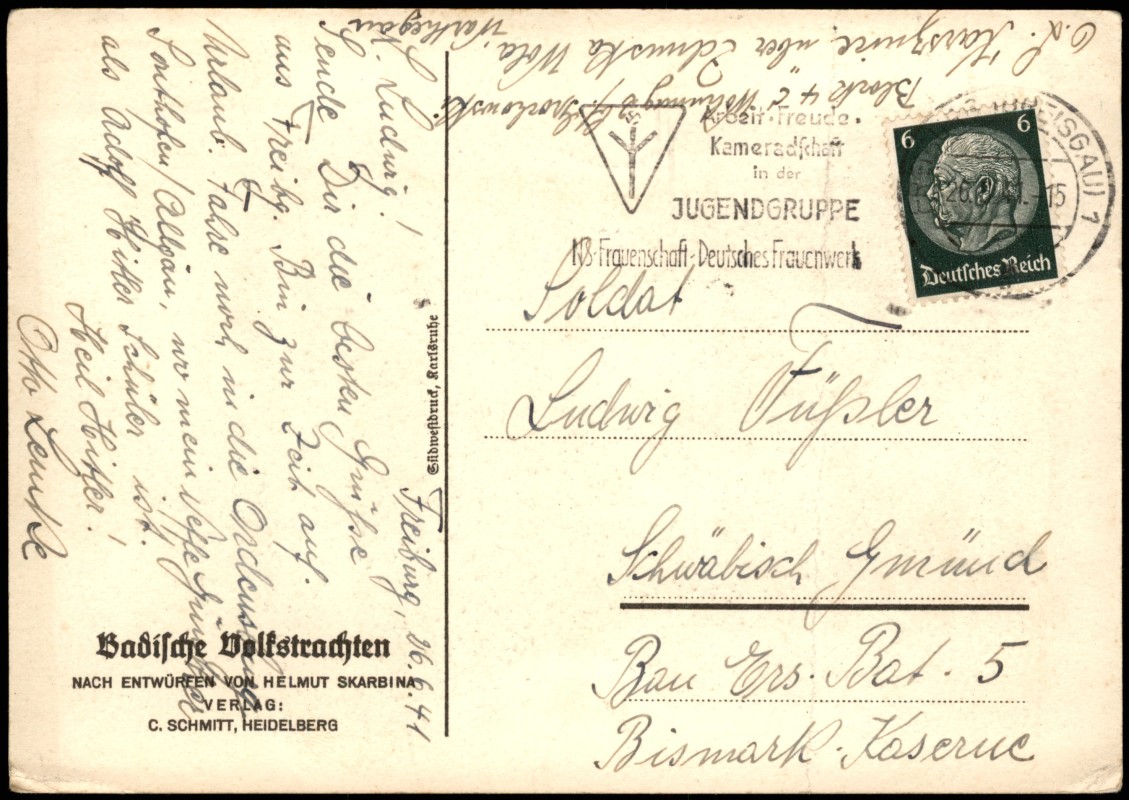 Freiburg, 26.6.41
L. Ludwig!
Sende Dir die besten Grüße
aus Freibg. Bin zur Zeit auf
Urlaub. Fahre noch in die Ordensburg
Sonthofen/Allgäu, wo mein Neffe Günther
als Adolf Hitler Schüler ist.
Heil Hitler!
Otto Lemke
O.L. Karsznice über Zdunska Wola,
Block 4 c Wohnung 8
K. Warthegau
Arbeit·Freude·
Kameradschaft
in der
JUGENDGRUPPE
NS-Frauenschaft-Deutsches Frauenwerk
6 6
Deutsches Reich
(BREISGAU) 1
26. 41.-15
Soldat
Ludwig Füßler
Schwäbisch Gmünd
Bau Ers. Bat. 5
Bismark-Kaserne
Südwestdruck, Karlsruhe
Badische Volkstrachten
NACH ENTWÜRFEN VON HELMUT SKARBINA
VERLAG:
C. SCHMITT, HEIDELBERG